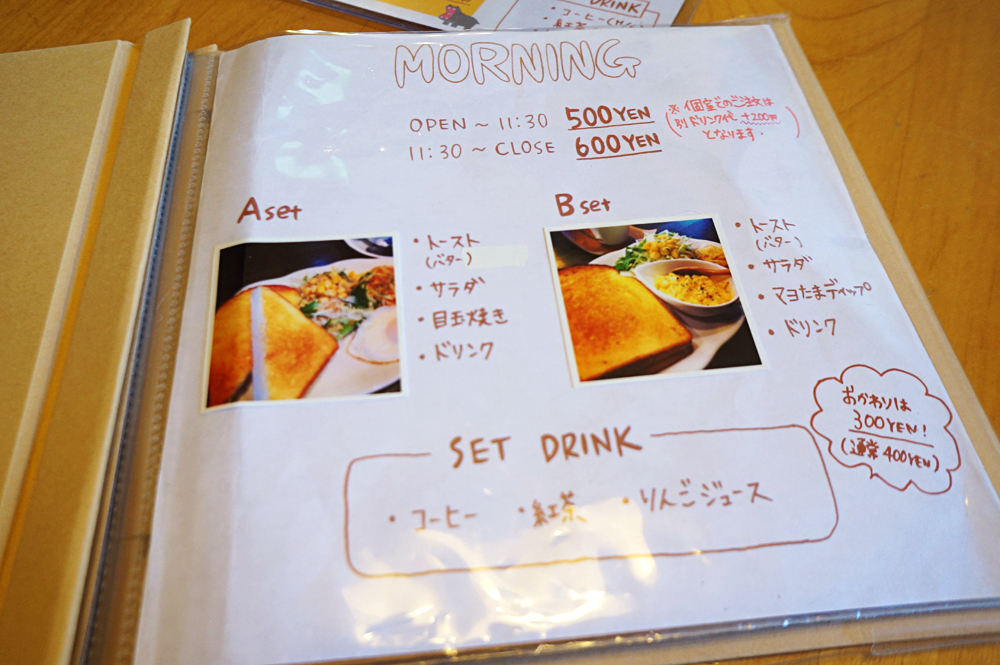 DRINK
・コーヒー
・紅茶
MORNING
OPEN ～ 11:30 500YEN
11:30 ～ CLOSE 600YEN
※個室でのご注文は
別ドリンク代 +200円
となります.
A set
・トースト
(バター)
・サラダ
・目玉焼き
・ドリンク
B set
・トースト
(バター)
・サラダ
・マヨたまディップ
・ドリンク
おかわりは
300YEN!
(通常400YEN)
SET DRINK
・コーヒー ・紅茶 ・りんごジュース